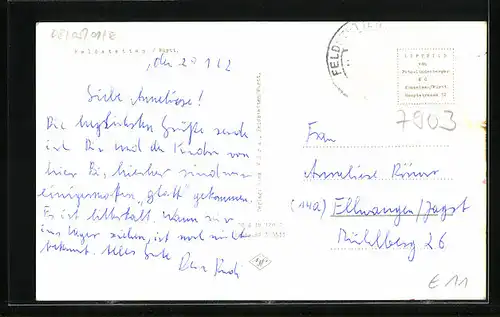 Feldstetten / Württ.
, den 2. 1 62
Liebe Anneliese!
Die herzlichsten Grüße sende
ich Dir und den Kindern von
hier. Bis hierher sind wir
einigermaßen „glatt" gekommen.
Es ist bitterkalt. Wann wir
ins Lager ziehen, ist noch nicht
bekannt. Alles Gute
Dein Rudi
FELD
7903
Frau
Anneliese Römer
(14a) Ellwangen/Jagst
Mühlberg 26
E 11